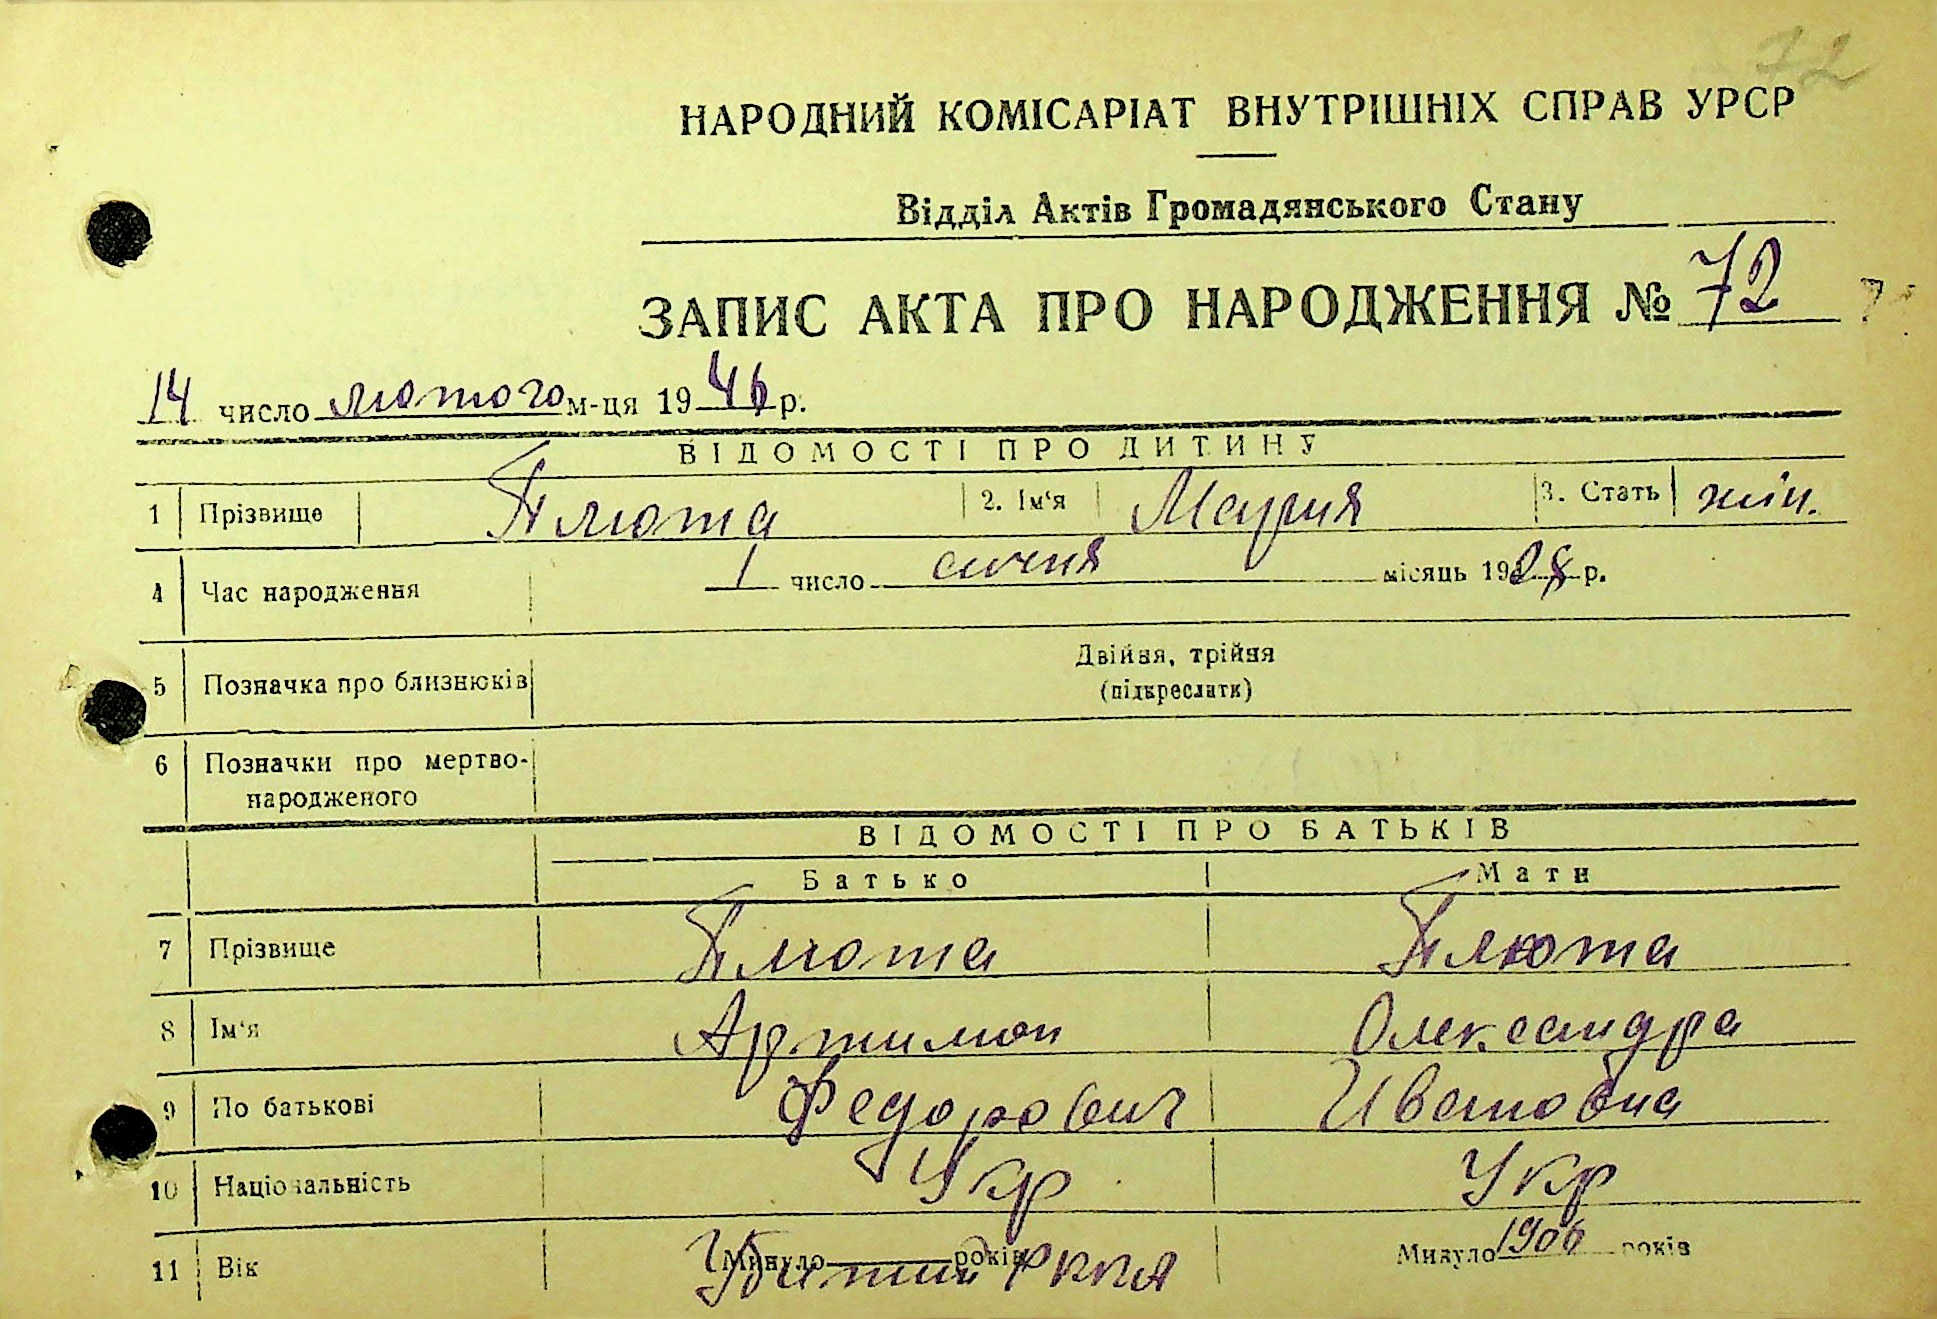 72
НАРОДНИЙ КОМІСАРІАТ ВНУТРІШНІХ СПРАВ УРСР
Відділ Актів Громадянського Стану
ЗАПИС АКТА ПРО НАРОДЖЕННЯ № 72
14 число лютого м-ця 1946 р.
ВІДОМОСТІ ПРО ДИТИНУ
1 Прізвище Плюта 2. Ім‘я Мария 3. Стать жін.
4 Час народження 1 число січня місяць 1928 р.
5 Позначка про близнюків Двійня, трійня
(підкреслити)
6 Позначки про мертво-
народженого
ВІДОМОСТІ ПРО БАТЬКІВ
Батько Мати
7 Прізвище Плюта Плюта
8 Ім‘я Артимон Олександра
9 По батькові Федорович Ивановна
10 Національність Укр Укр
11 Вік Минуло років Убитий РККА Минуло 1906 років